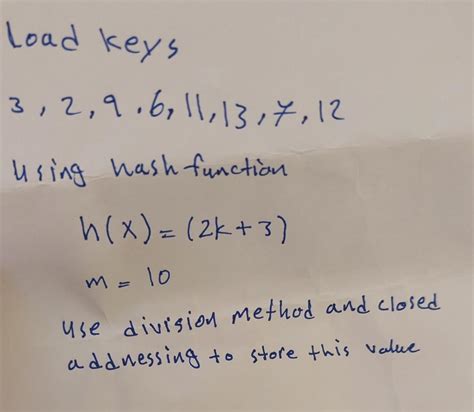 Load keys
3, 2, 9, 6, 11, 13, 7, 12
Using hash function
h(x) = (2k+3)
m = 10
use division method and closed
addnessing to store this value